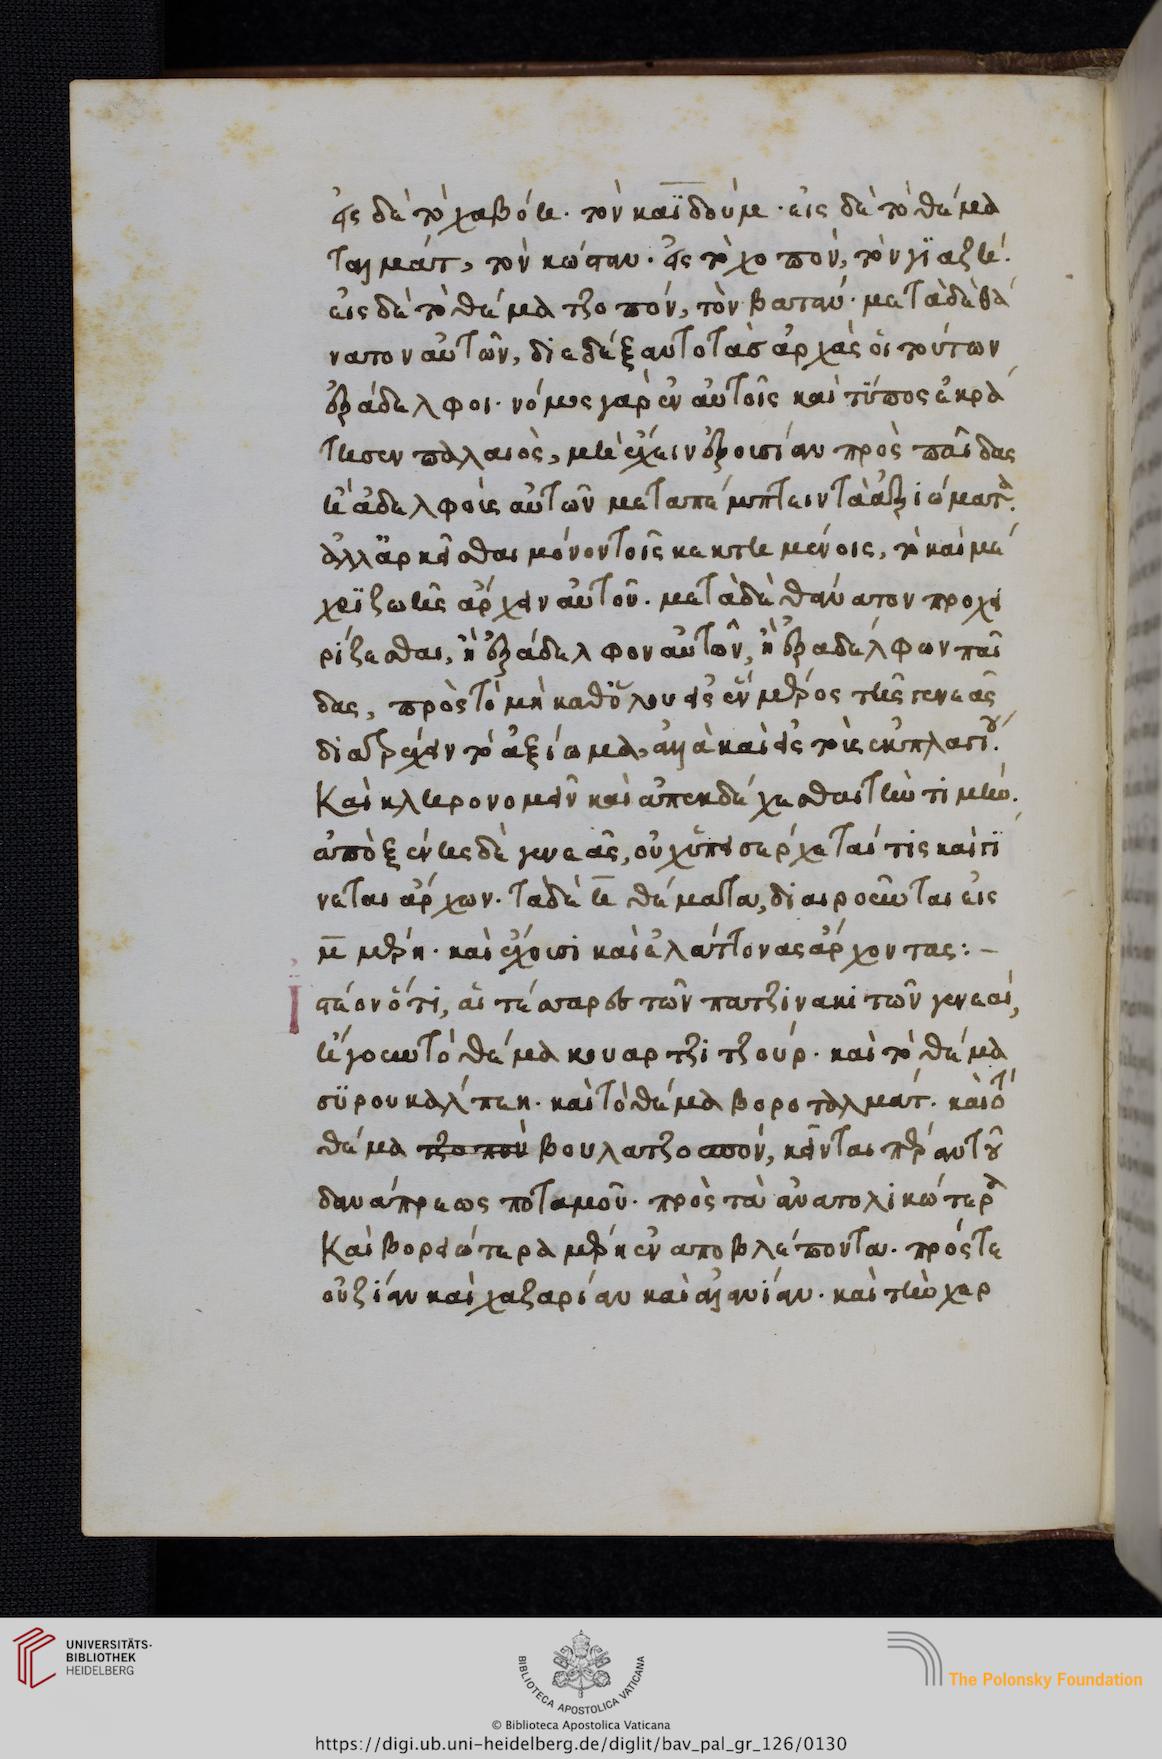 εἰς δὲ τὸ χαβόη· τὸν καϊδούμ· εἰς δὲ τὸ θέμα
ταλμάτ, τὸν κώσταν· εἰς τὸ χοπόν, τὸν γϊαζή·
εἰς δὲ τὸ θέμα τζοπόν, τὸν βατάν· μετὰ δὲ θά
νατον αὐτῶν, διεδέξαντο τὰς ἀρχὰς οἱ τούτων
ἐξάδελφοι· νόμος γὰρ ἐν αὐτοῖς καὶ τύπος ἐκρά
τησεν παλαιὸς, μὴ ἔχειν ἐξουσίαν πρὸς παῖδας
ἢ ἀδελφοὺς αὐτῶν μεταπέμπτειν τὰ ἀξιώματα·
ἀλλ' ἀρκεῖσθαι μόνον τοῖς κεκτημένοις, τὸ καὶ μέ
χρϊ ζωῆς ἄρχειν αὐτοῦ· μετὰ δὲ θάνατον προχει
ρίζεσθαι, ἢ ἐξάδελφον αὐτῶν, ἢ ἐξαδέλφων παῖ
δας, πρὸς τὸ μὴ καθόλου εἰς ἓν μέρος τῆς γενεᾶς
διατρέχειν τὸ ἀξίωμα, ἀλλὰ καὶ εἰς τοὺς ἐκπλαγίου·
Καὶ κληρονομεῖν καὶ ἀπεκδέχεσθαι τὴν τιμήν·
ἀπὸ ξένης δὲ γενεᾶς, οὐχ ὑπεισέρχεταί τις καὶ γί
νεται ἄρχων· τὰ δὲ η θέματα, διαιροῦνται εἰς
μ μέρη· καὶ ἔχουσι καὶ ἐλάττονας ἄρχοντας:–
Ἰστέον ὅτι, αἱ τέσσαρες τῶν πατζινακιτῶν γενεαί,
ἤγουν τὸ θέμα κουαρτζιτζούρ· καὶ τὸ θέμα
σϋρουκαλπέη· καὶ τὸ θέμα βοροταλμάτ· καὶ τὸ
θέμα τζοπὸν βουλατζοσπόν, κεῖνται πέραν τοῦ
δανάπρεως ποταμοῦ· πρὸς τὰ ἀνατολικώτερα
Καὶ βορειώτερα μέρη ἐναποβλέποντα· πρός τε
οὐζίαν καὶ χαζαρίαν καὶ ἀλανίαν· καὶ τὴν χερ
UNIVERSITÄTS-
BIBLIOTHEK
HEIDELBERG
BIBLIOTECA APOSTOLICA VATICANA
The Polonsky Foundation
© Biblioteca Apostolica Vaticana
https://digi.ub.uni-heidelberg.de/diglit/bav_pal_gr_126/0130